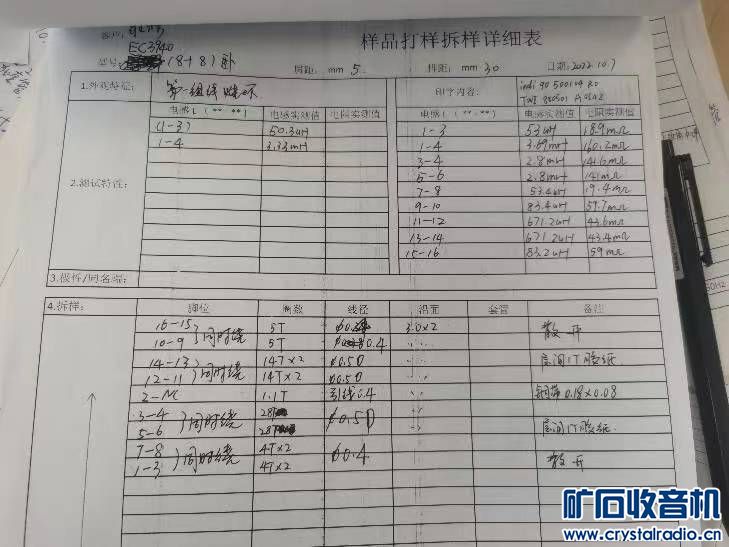 样品打样拆样详细表
EC3940
(8+8)卧 周距: mm 5. 排距: mm 30 日期: 2022.10.7
1.外观特征: 第一组线 印字内容:
电感L(** **) 电感实测值 电阻实测值 电感L(** **) 电感实测值 电阻实测值
(1-3) 50.3uH 1-3 53uH 18.9mΩ
1-4 3.33mH 1-4 3.69mH 160.2mΩ
3-4 2.8mH 141.6mΩ
2.测试特性: 5-6 2.8mH 141mΩ
7-8 53.4uH 19.4mΩ
9-10 83.4uH 59.7mΩ
11-12 671.2uH 43.6mΩ
13-14 671.2uH 43.4mΩ
15-16 83.2uH 59mΩ
3.极性/同名端:
4.拆样: 脚位 圈数 线径 沿宽 套管 备注
16-15 同时绕 5T 3.0×2 散开
10-9 5T 0.4
14-13 同时绕 14T×2 φ0.5D 层间1T胶纸
12-11 14T×2 φ0.5D
2-NC 1.1T 引线0.4 铜带0.18×0.08
3-4 同时绕 28T φ0.5D
5-6 28T 层间1T胶纸
7-8 同时绕 4T×2 φ0.4
1-3 4T×2 散开
矿石收音机
www.crystalradio.cn